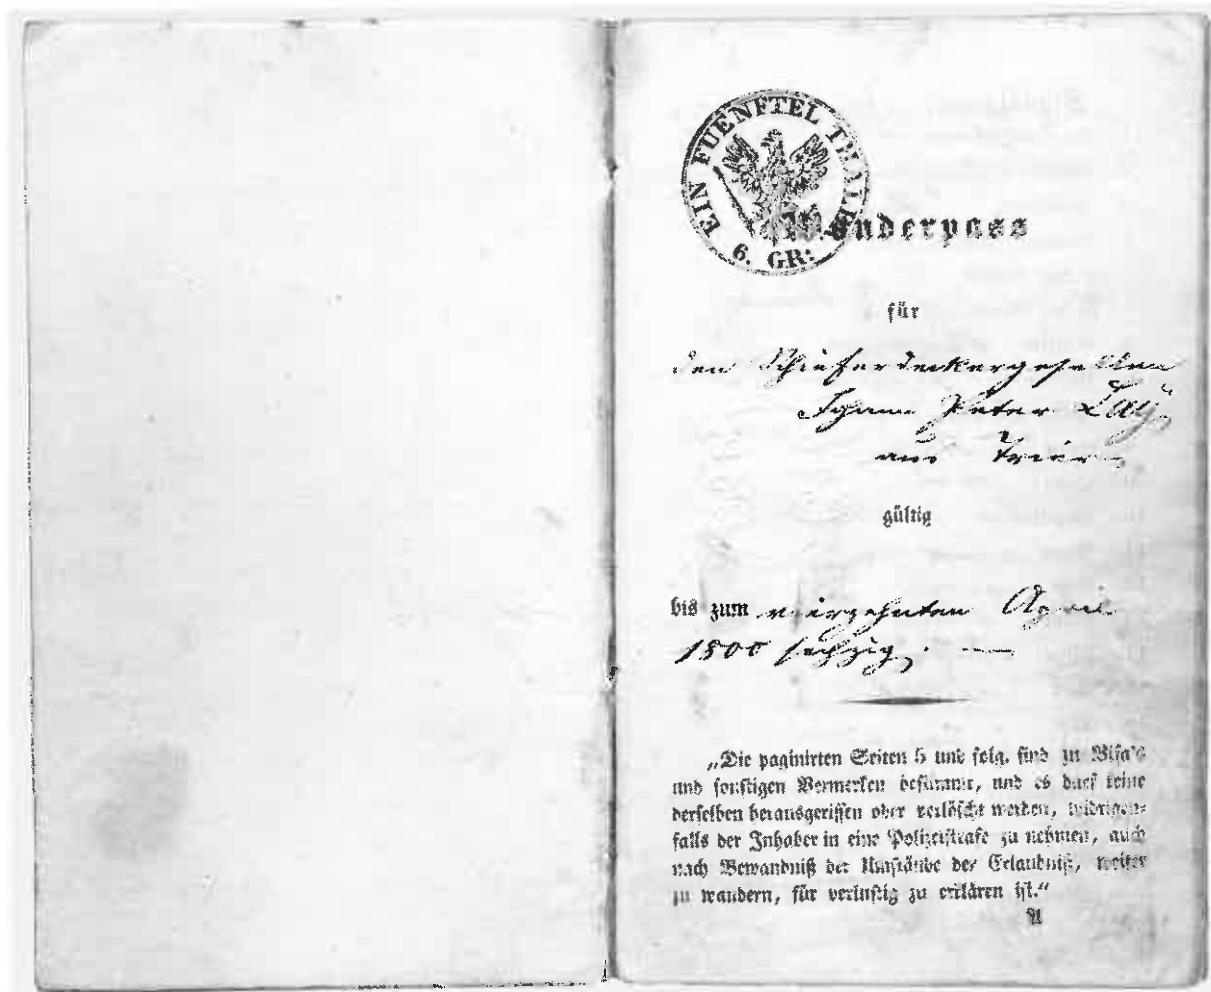 EIN FUENFTEL THALER
6. GR:
Wanderpass
für
den Schieferdeckergesellen
Johann Peter Laÿ,
aus Trier
gültig
bis zum vierzehnten April
1800 sechzig.
„Die paginirten Seiten 5 und folg. sind zu Visa's
und sonstigen Vermerken bestimmt, und es darf keine
derselben herausgerissen oder verlöscht werden, widrigen-
falls der Inhaber in eine Polizeistrafe zu nehmen, auch
nach Bewandniß der Umstände der Erlaubniß, weiter
zu wandern, für verlustig zu erklären ist.“
A